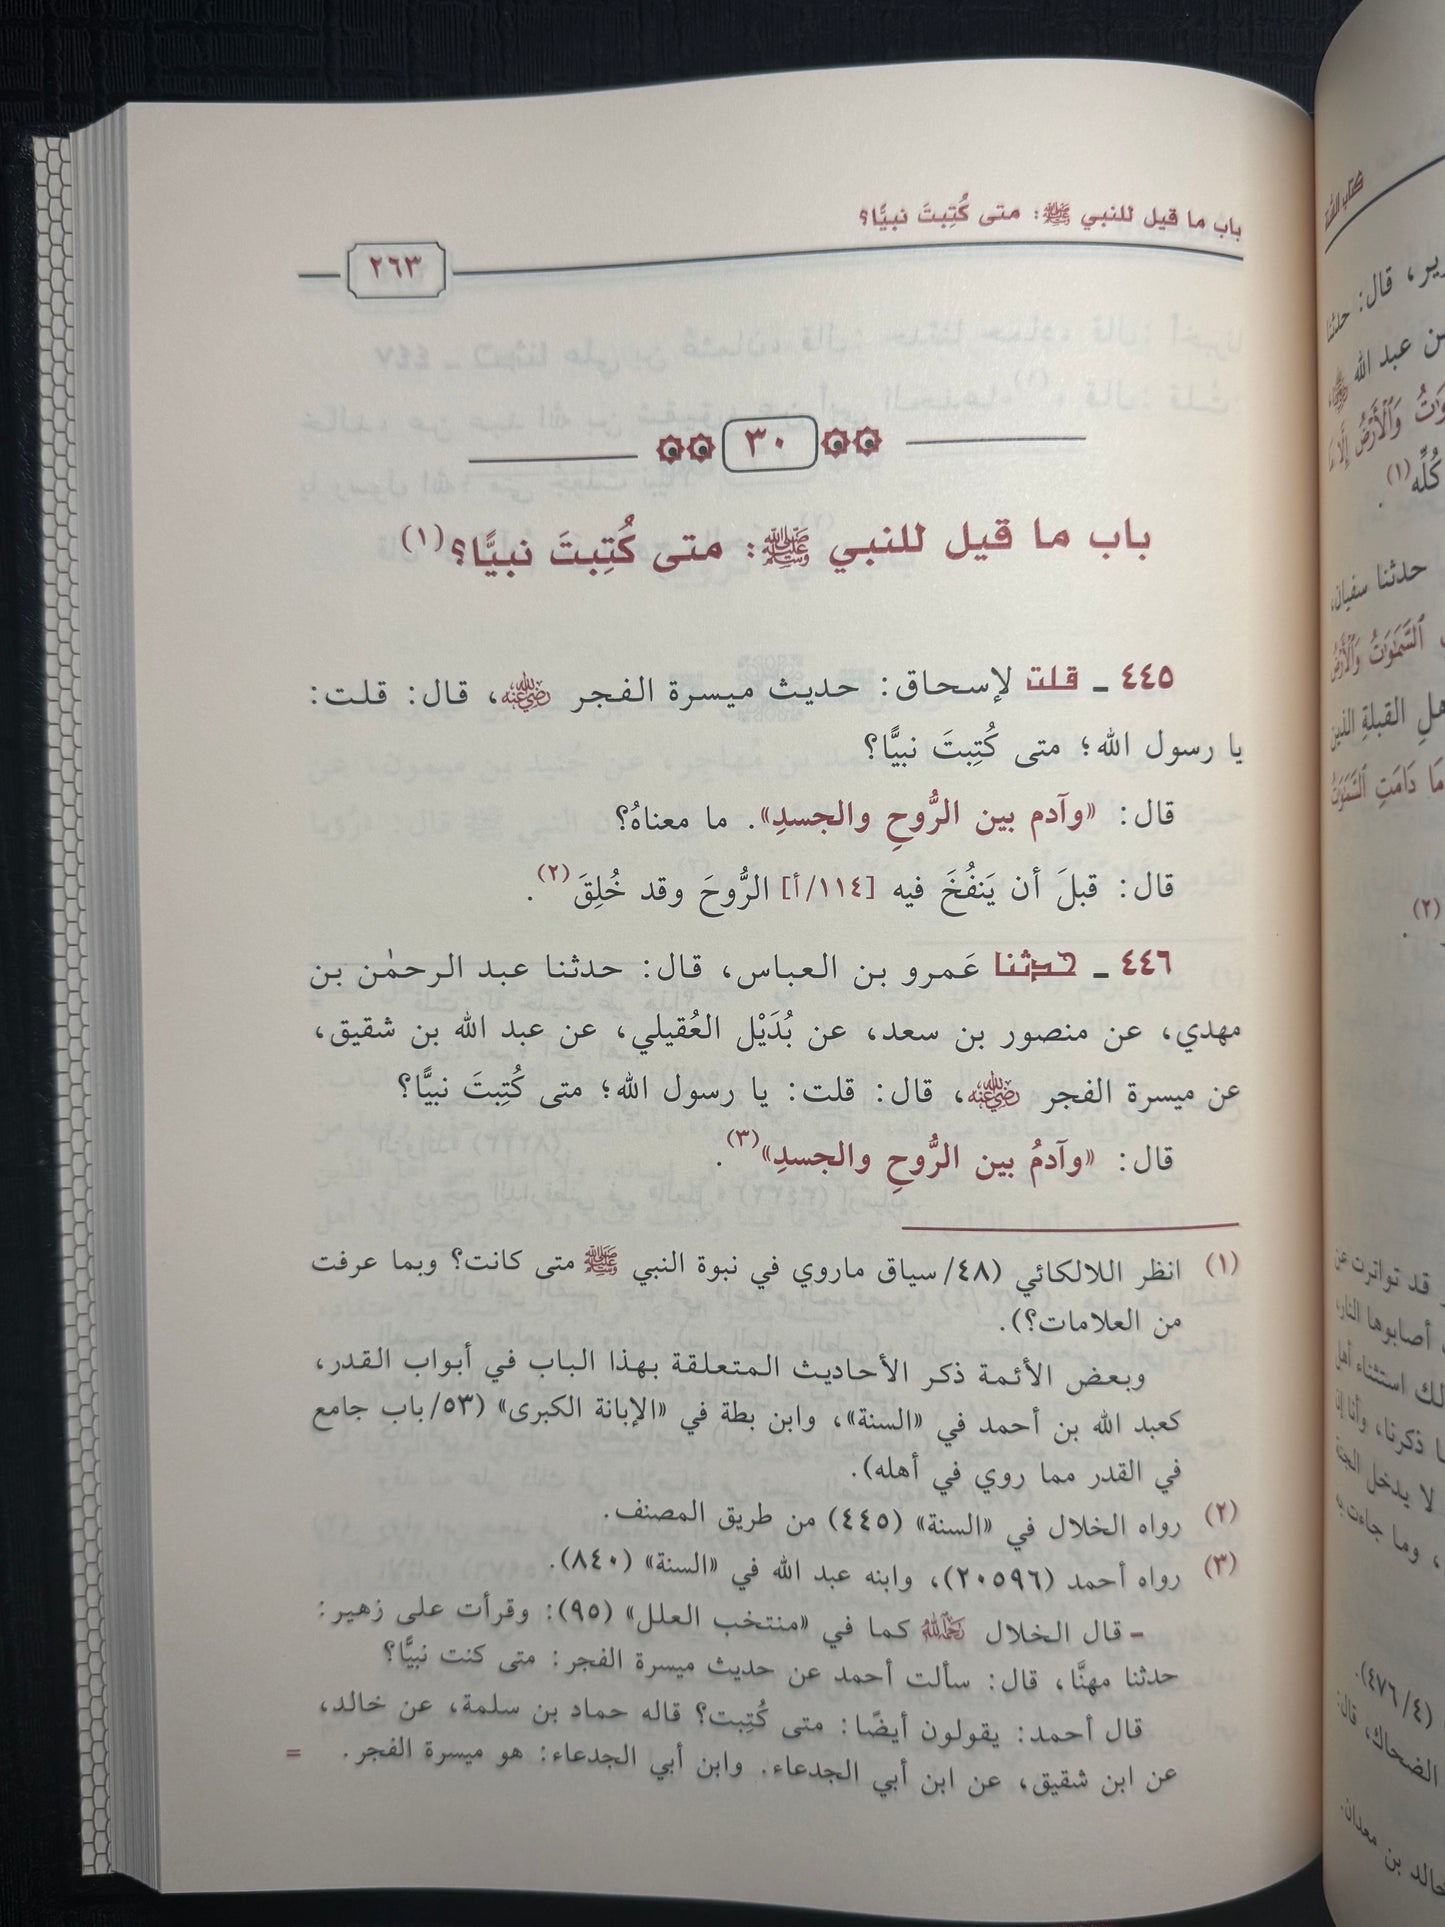 باب ما قيل للنبي ﷺ: متى كُتِبتَ نبيًّا؟
٢٦٣
٣٠
باب ما قيل للنبي ﷺ: متى كُتِبتَ نبيًّا؟(١)
٤٤٥ ـ قلت لإسحاق: حديث ميسرة الفجر رضي الله عنه، قال: قلت:
يا رسول الله؛ متى كُتِبتَ نبيًّا؟
قال: «وآدم بين الرُّوحِ والجسدِ». ما معناهُ؟
قال: قبلَ أن يَنفُخَ فيه [١١٤/أ] الرُّوحَ وقد خُلِقَ(٢).
٤٤٦ ـ حدثنا عَمرو بن العباس، قال: حدثنا عبد الرحمٰن بن
مهدي، عن منصور بن سعد، عن بُدَيْل العُقيلي، عن عبد الله بن شقيق،
عن ميسرة الفجر رضي الله عنه، قال: قلت: يا رسول الله؛ متى كُتِبتَ نبيًّا؟
قال: «وآدمُ بين الرُّوحِ والجسدِ»(٣).
(١) انظر اللالكائي (٤٨/سياق ماروي في نبوة النبي ﷺ متى كانت؟ وبما عرفت
من العلامات؟).
وبعض الأئمة ذكر الأحاديث المتعلقة بهذا الباب في أبواب القدر،
كعبد الله بن أحمد في «السنة»، وابن بطة في «الإبانة الكبرى» (٥٣/باب جامع
في القدر مما روي في أهله).
(٢) رواه الخلال في «السنة» (٤٤٥) من طريق المصنف.
(٣) رواه أحمد (٢٠٥٩٦)، وابنه عبد الله في «السنة» (٨٤٠).
- قال الخلال رحمه الله كما في «منتخب العلل» (٩٥): وقرأت على زهير:
حدثنا مهنَّا، قال: سألت أحمد عن حديث ميسرة الفجر: متى كنت نبيًّا؟
قال أحمد: يقولون أيضًا: متى كُتِبت؟ قاله حماد بن سلمة، عن خالد،
عن ابن شقيق، عن ابن أبي الجدعاء. وابن أبي الجدعاء: هو ميسرة الفجر. =
كتاب السنة
قال: حدثنا
ن عبد الله
وَٱلْأَرْضُ إِلَّا
كُلِّه(١).
حدثنا سفيان،
ٱلسَّمَٰوَٰتُ وَٱلْأَرْضُ
هلِ القبلةِ الذين
مَا دَامَتِ ٱلسَّمَٰوَٰتُ
(٢).
قد تواترت عن
أصابوها النار،
لك استثناء أهل
ا ذكرنا، وأنا
لا يدخل
، وما جاءت به
(٤/٤٧٦).
الضحاك، قال:
خالد بن معدان.